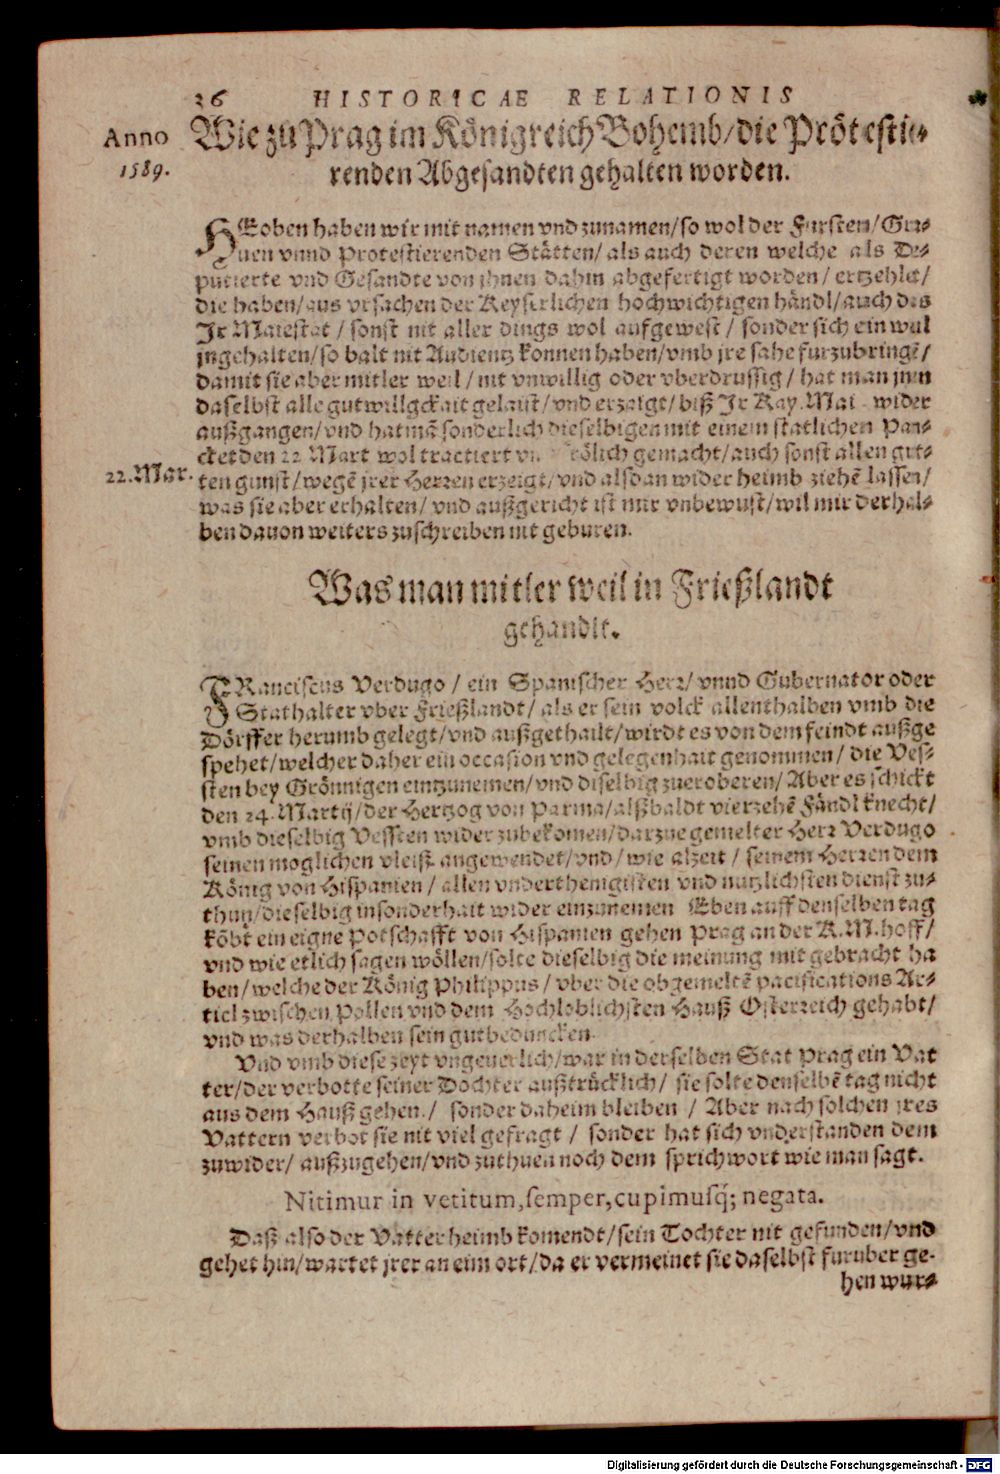 26 HISTORICAE RELATIONIS
Anno
1589.
Wie zu Prag im Königreich Bohemb/die Protestie-
renden Abgesandten gehalten worden.
HIEoben haben wir mit namen vnd zunamen/so wol der Fürsten/Gra-
uen vnnd Protestierenden Stätten/als auch deren welche als De-
putierte vnd Gesandte von ihnen dahin abgefertigt worden/ ertzehlet/
die haben/aus vrsachen der Keyserlichen hochwichtigen händl/auch das
Ir Maiestat / sonst nit aller dings wol aufgewest / sonder sich ein wul
jngehalten/so balt nit Audientz konnen haben/vmb jre sahe furzubringē/
damit sie aber mitler weil / nit vnwillig oder vberdrussig / hat man jnen
daselbst alle gutwillgckait gelaist/vnd erzaigt/biß Ir Kay. Mai. wider
außgangen/vnd hat mā sonderlich dieselbigen mit einem statlichen Pan-
cket den 22 Mart wol tractiert vn frölich gemacht/auch sonst allen gu-
22. Mar.
ten gunst/wegē jrer Herren erzeigt/vnd alsdan wider heimb ziehē lassen/
was sie aber erhalten/ vnd außgericht ist mir vnbewust/wil mir derhal-
ben dauon weiters zuschreiben nit geburen.
Was man mitler weil in Frießlandt
gehandlt.
FRanciscus Verdugo / ein Spanischer Herr/ vnnd Gubernator oder
Stathalter vber Frießlandt/ als er sein volck allenthalben vmb die
Dörffer herumb gelegt/vnd außgethailt/wirdt es von dem feindt außge
spehet/welcher daher ein occasion vnd gelegenhait genommen/ die Ves-
sten bey Grönnigen einzunemen/vnd diselbig zueroberen/ Aber es schickt
den 24. Martij/der Hertzog von Parma/alßbaldt vierzehē Fändl knecht/
vmb dieselbig Vessten wider zubekomen/darzue gemelter Herr Verdugo
seinen moglichen vleist angewendet/vnd/wie alzeit / seinem Herren dem
König von Hispanien / allen vnderthenigisten vnd nutzlichsten dienst zu-
thun/dieselbig insonderhait wider einzunemen Eben auff denselben tag
köbt ein eigne Potschafft von Hispanien gehen Prag an der K. M. hoff/
vnd wie etlich sagen wöllen/solte dieselbig die meinung mit gebracht ha
ben/welche der König Philippus / vber die obgemeltē pacifications Ar-
ticl zwischen Pollen vnd dem Hochloblichsten Hauß Osterreich gehabt/
vnd was derhalben sein gutbeduncken.
Vnd vmb diese zeyt vngeuerlich/war in derselben Stat Prag ein Vat
ter/der verbotte seiner Dochter außtrücklich/ sie solte denselbē tag nicht
aus dem Hauß gehen/ sonder daheim bleiben / Aber nach solchen jres
Vattern verbot sie nit viel gefragt / sonder hat sich vnderstanden dem
zuwider/ außzugehen/vnd zuthuen noch dem sprichwort wie man sagt.
Nitimur in vetitum, semper, cupimusq́; negata.
Daß also der Vatter heimb komendt/sein Tochter nit gefunden/vnd
gehet hin/wartet jrer an eim ort/da er vermeinet sie daselbst furuber ge-
hen wur-
Digitalisierung gefördert durch die Deutsche Forschungsgemeinschaft - DFG